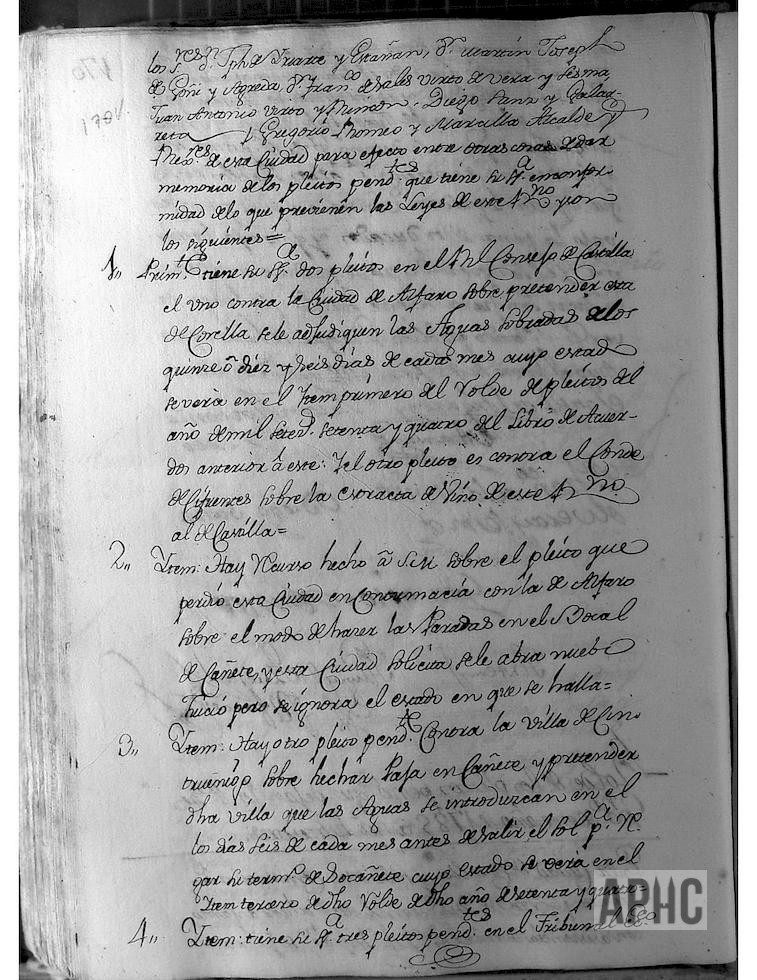 los S.res D.n Jph de Yriarte y Estañan, D.n Martin Joseph
de Goñi y Agreda, D.n Fran.co de Sales Virto de Vera y Lesma,
Juan Antonio Virto y Ximenez, Diego Sanz y Galar-
reta y Gregorio Romeo y Marcilla Alcalde y
Rex.res de esta Ciudad para efecto entre otras cosas de dar
memoria de los pleitos pend.tes que tiene su S.a en confor-
midad de lo que previenen las Leyes de este R.no y son
los siguientes=
1,, Prim.te tiene su S.a dos pleitos en el Rl Consejo de Castilla
el uno contra la Ciudad de Alfaro sobre pretender esta
de Corella se le adjudiquen las Aguas sobradas de los
quinze ô diez y seis dias de cada mes cuyo estado
se verà en el Ytem primero del Volde de pleitos del
año de mil seted. setenta y quatro del Libro de Acuer-
dos anterior â este: Y el otro pleito es contra el Conde
de Cifuentes sobre la extracta de Vino de este R.no
al de Castilla=
2,, Ytem: Hay Recurso hecho â S.M. sobre el pleito que
perdiò esta Ciudad en Contumacia con la de Alfaro
sobre el modo de hazer las Paradas en el Bocal
de Cañete, y esta Ciudad solicita se le abra nuebo
Juicio pero se ignora el estado en que se halla=
3,, Ytem: Hay otro pleito pend.te Contra la villa de Cin-
truenigo sobre hechar Paja en Cañete y pretender
dha villa que las Aguas se introduzcan en el
los dias seis de cada mes antes de salir el Sol p.a Re-
gar su term.o de Socañete cuyo estado se verà en el
Ytem tercero de dho Volde de dho año de setenta y quatro=
4,, Ytem: tiene su S.a tres pleitos pend.tes en el Tribunal
APHC
170